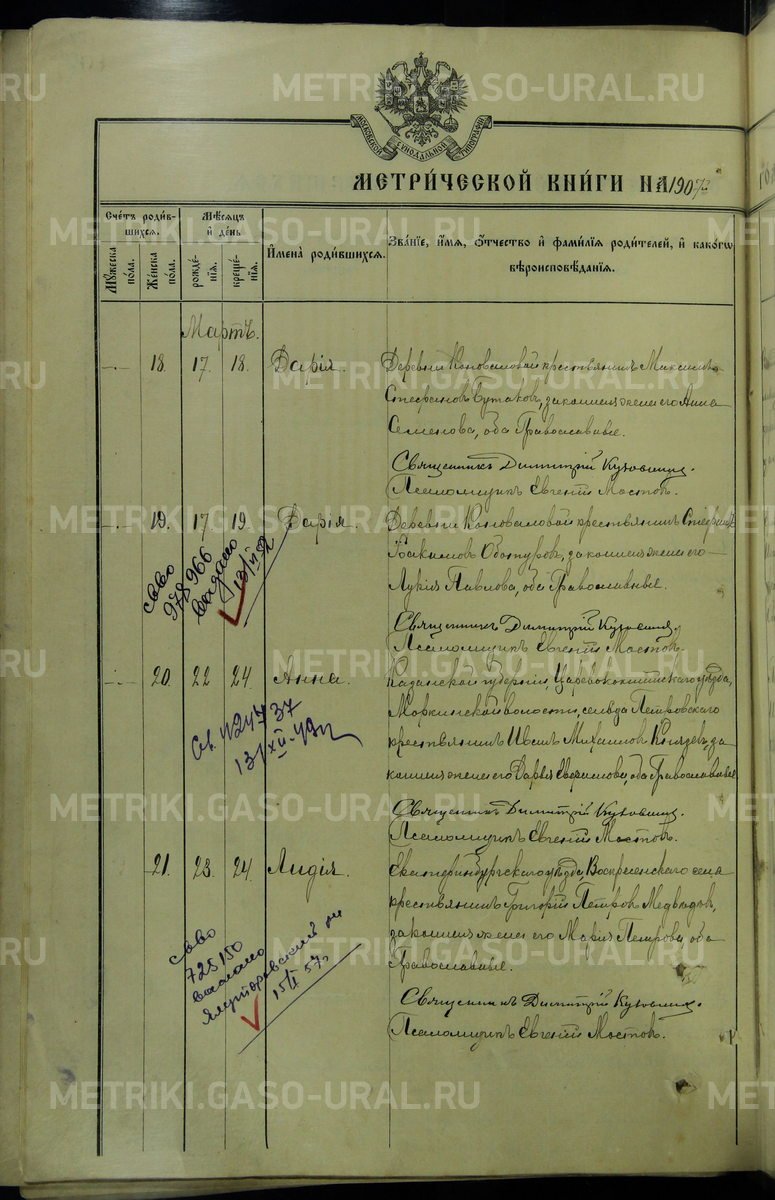 METRIKI.GASO-URAL.RU
МОСКОВСКОЙ СѴНОДАЛЬНОЙ ТИПОГРАФІИ
МЕТРИ́ЧЕСКОЙ КНИ́ГИ НА 1907
Сче́тъ роди́вшихсѧ.
Мꙋ́жеска по́ла.
Же́нска по́ла.
Мѣ́сѧцъ и҆ де́нь
рожде́нїѧ.
креще́нїѧ.
И҆мена̀ роди́вшихсѧ.
Зва́нїе, и҆́мѧ, ѻ҆́тчество и҆ фами́лїѧ роди́телей, и҆ како́гѡ
вѣроисповѣ́данїѧ.
Мартъ.
18. 17. 18. Дарія.
Деревни Коноваловой крестьянинъ Максимъ
Стефановъ Бутаковъ, законная жена его Анна
Семенова, оба Православные.
Священникъ Димитрій
Псаломщикъ Евгеній Мостовъ.
19. 17 19. Дарія.
Деревни Коноваловой крестьянинъ
законная жена его
Лукія Павлова, оба Православные.
Священникъ Димитрій
Псаломщикъ Евгеній Мостовъ.
св-во
978966
выдано
20. 22 24. Анна.
Казанской губерніи, Царевококшайскаго уѣзда,
Моркинской волости, села Петровскаго
крестьянинъ Михаиловъ Князевъ, за
конная жена его Дарья оба Православные
Священникъ Димитрій
Псаломщикъ Евгеній Мостовъ.
13/XII-49
21. 23. 24. Лидія.
Екатеринбургскаго уѣзда, Воскресенскаго села
крестьянинъ Григорій Петровъ Медвѣдевъ,
законная жена его Марія Петрова, оба
Православные.
Священникъ Димитрій
Псаломщикъ Евгеній Мостовъ.
св-во
725150
выдано
Ялуторовский
57